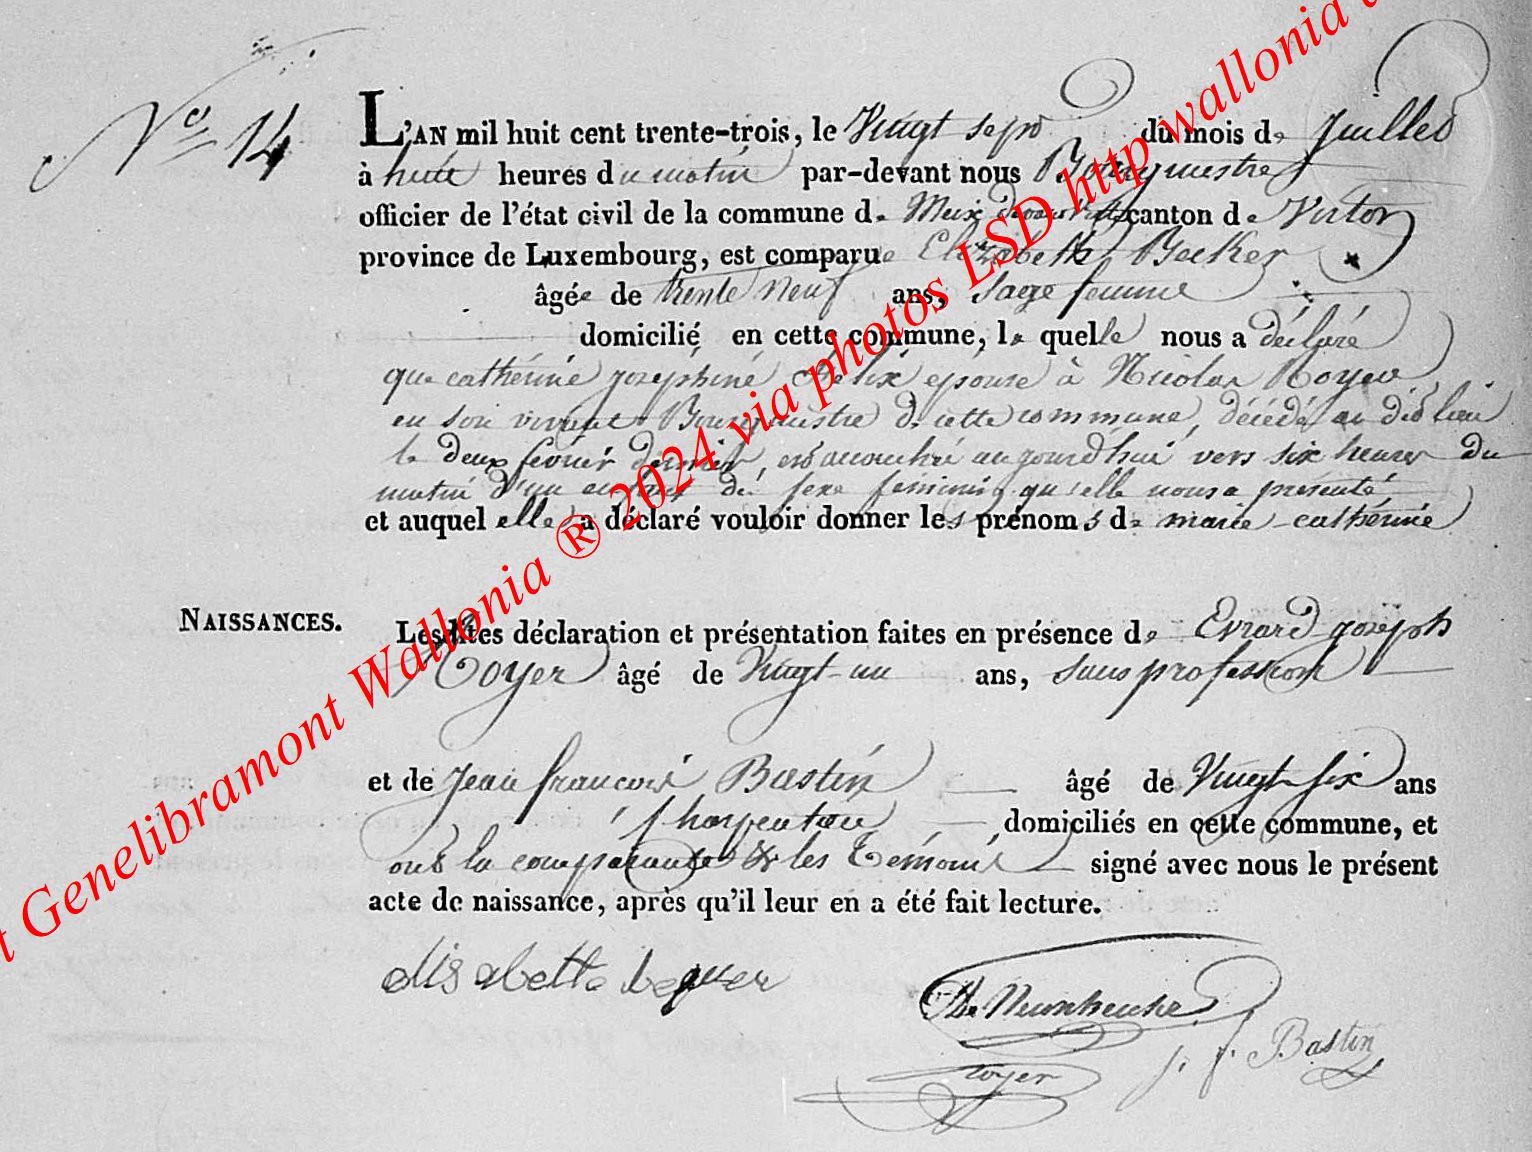 Nº 14
L'AN mil huit cent trente-trois, le Vingt sept du mois de Juillet
à huit heures du matin par-devant nous Bourgmestre
officier de l'état civil de la commune de Meix devant Virton canton de Virton
province de Luxembourg, est comparue Elizabeth Becker
âgée de trente neuf ans, Sage femme
domicilié en cette commune, la quelle nous a déclaré
que catherine josephine Félix epouse à Nicolas Royer
en son vivant Bourgmestre de cette commune, décédé au dit lieu
le deux fevrier dernier, est accouchée aujourd'hui vers six heures du
matin d'un enfant de sexe feminin qu'elle nous a presenté,
et auquel elle a déclaré vouloir donner les prénoms de marie catherine
NAISSANCES.
Lesdites déclaration et présentation faites en présence de Evrard joseph
âgé de Vingt-un ans, sans profession
et de Jean françois Bastin âgé de Vingt six ans
Charpentier domiciliés en cette commune, et
ont la comparante & les Temoins signé avec nous le présent
acte de naissance, après qu'il leur en a été fait lecture.
elisabette
J. f. Bastin
t Genelibramont Wallonia ® 2024 via photos LSD http wallonia